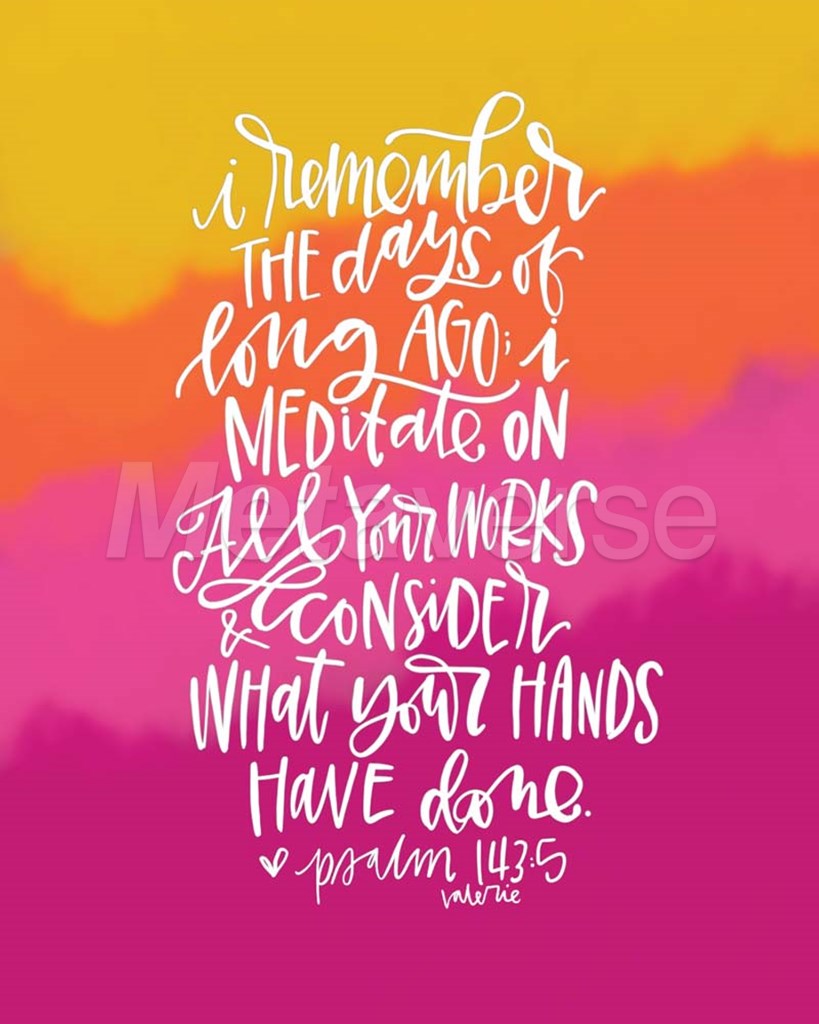 i remember
THE days of
long AGO; i
MEDitate ON
All Your WORKS
& CONSiDER
WHat your HANDS
HAVE done.
psalm 143:5
valerie
Metaverse